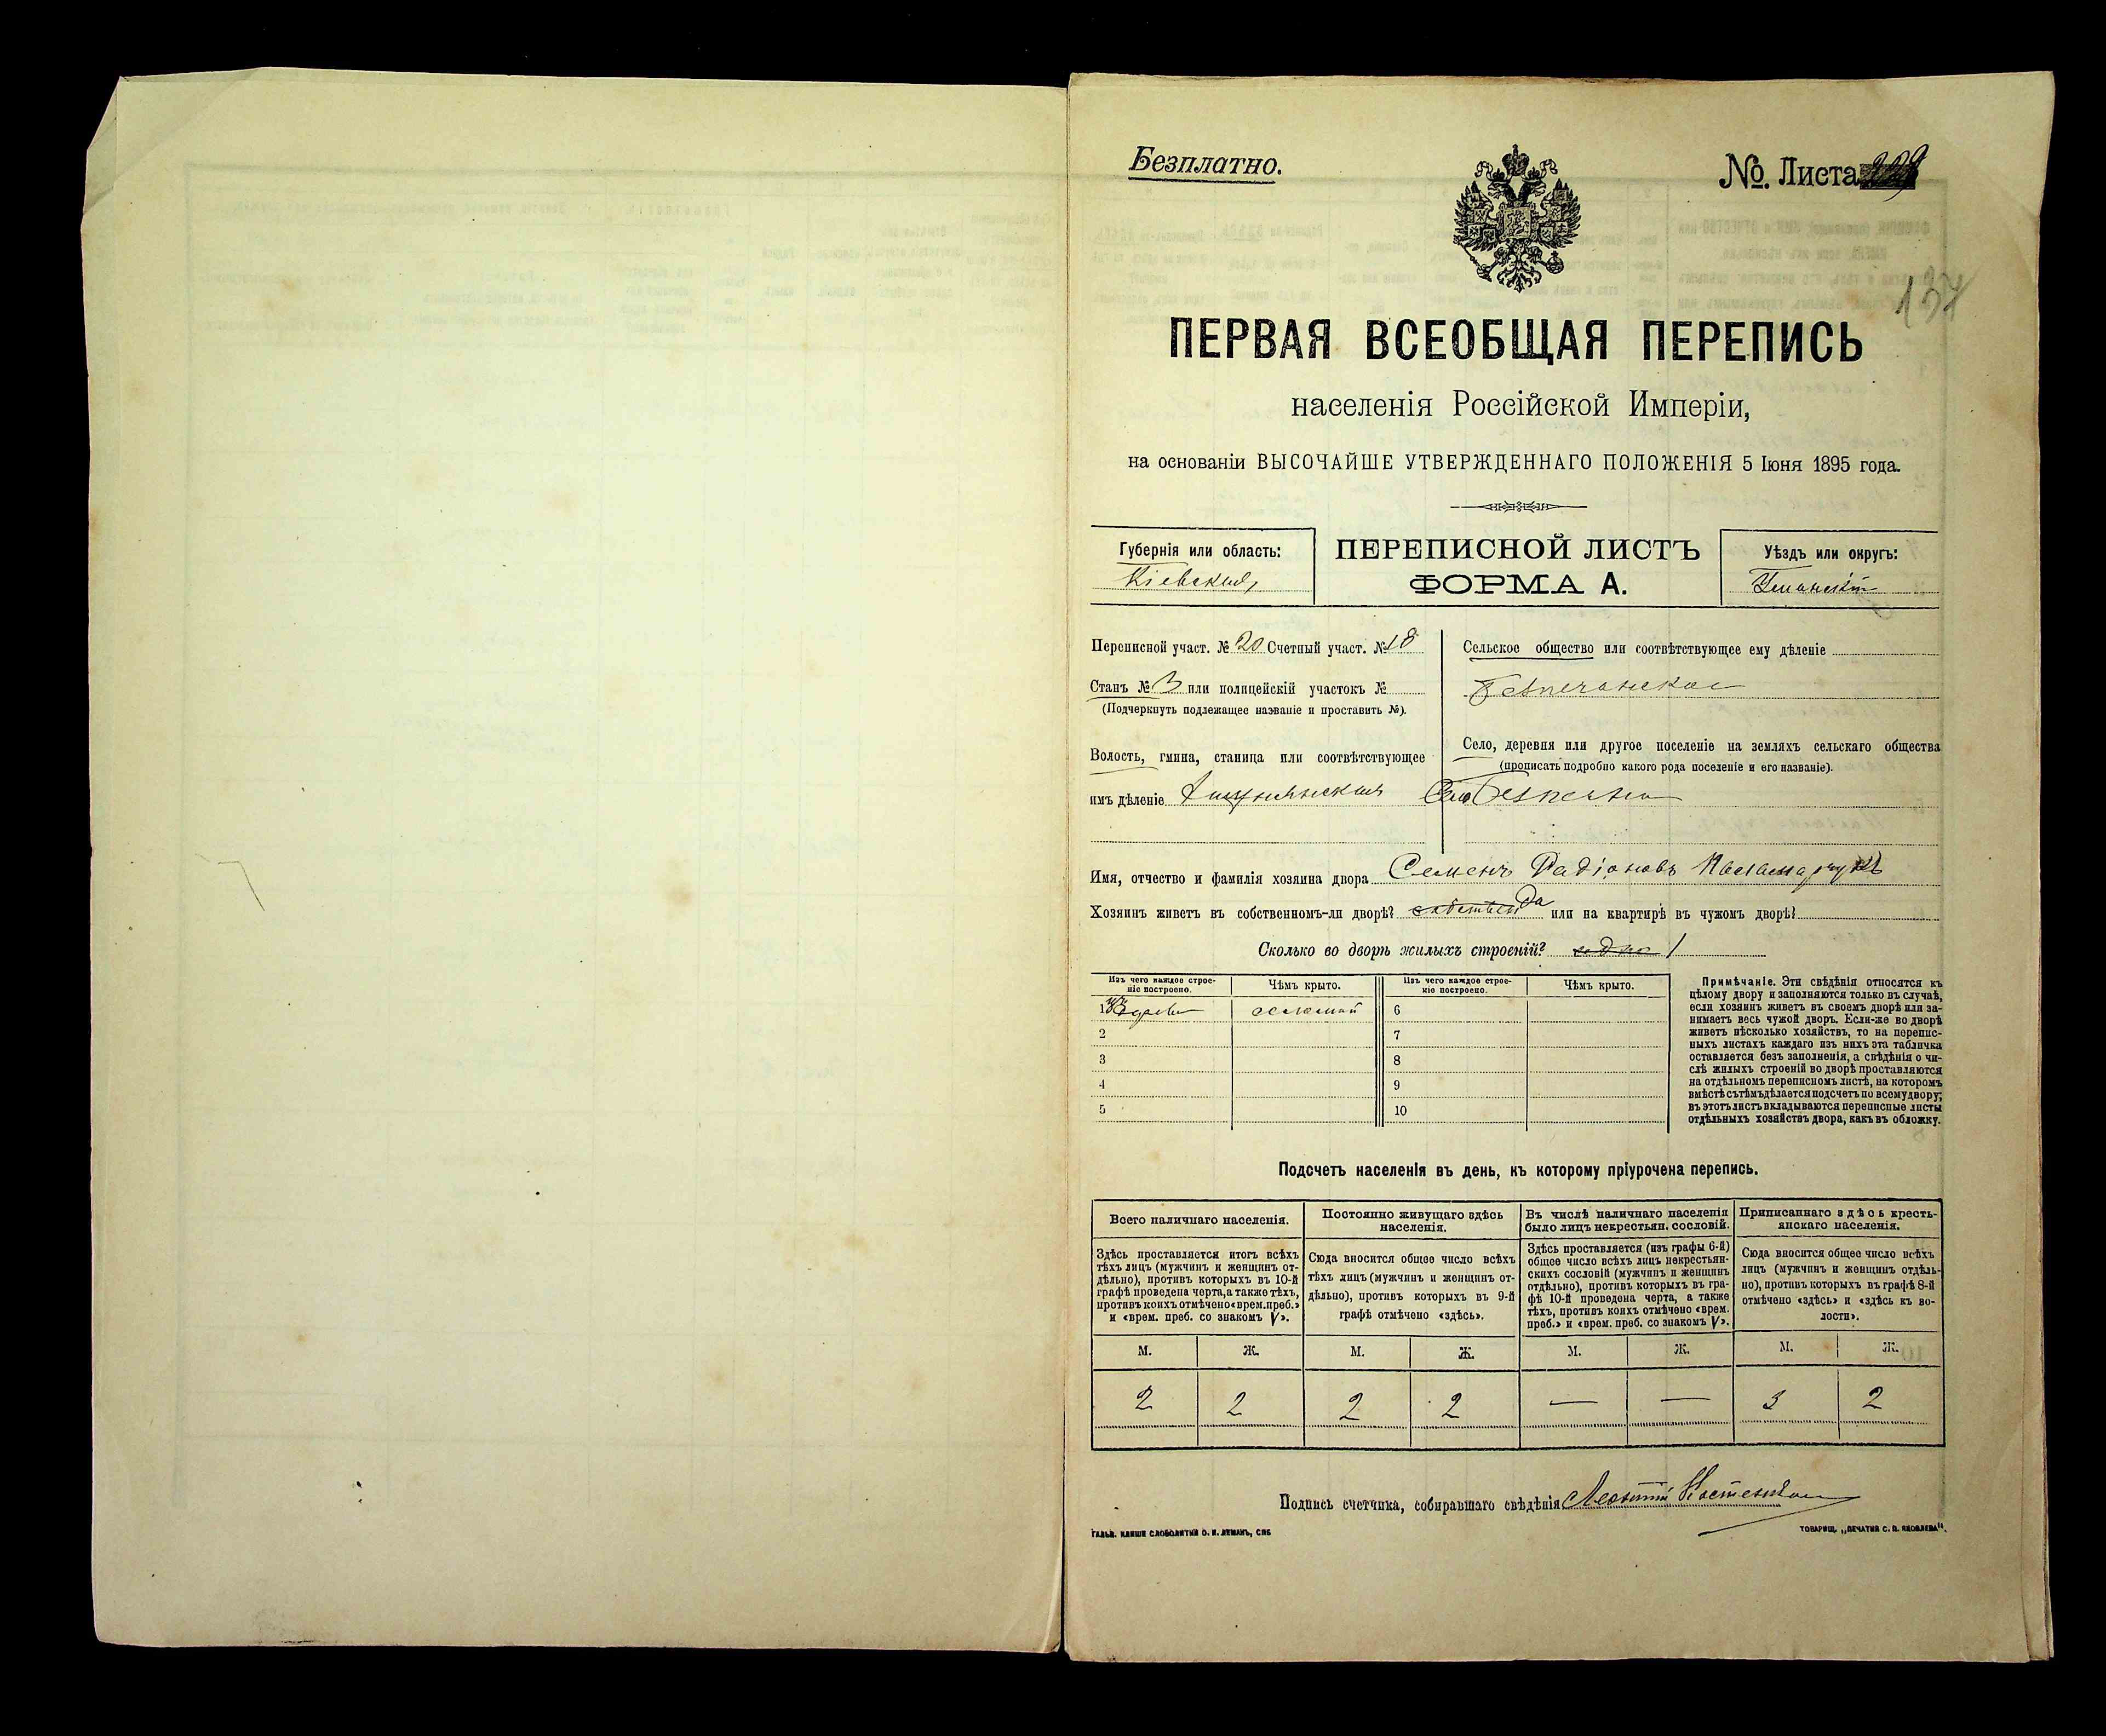 Безплатно.
№. Листа
137
ПЕРВАЯ ВСЕОБЩАЯ ПЕРЕПИСЬ
населенія Россійской Имперіи,
на основаніи ВЫСОЧАЙШЕ УТВЕРЖДЕННАГО ПОЛОЖЕНІЯ 5 Іюня 1895 года.
Губернія или область:
Кіевская
ПЕРЕПИСНОЙ ЛИСТЪ
ФОРМА А.
Уѣздъ или округъ:
Уманскій
Переписной участ. № 20 Счетный участ. № 18
Станъ № 3 или полицейскій участокъ №
(Подчеркнуть подлежащее названіе и проставить №).
Волость, гмина, станица или соотвѣтствующее
имъ дѣленіе
Сельское общество или соотвѣтствующее ему дѣленіе
Безпечанское
Село, деревня или другое поселеніе на земляхъ сельскаго общества
(прописать подробно какого рода поселеніе и его названіе).
Село Безпечна
Имя, отчество и фамилія хозяина двора Семенъ Радіоновъ Паламарчукъ
Хозяинъ живетъ въ собственномъ-ли дворѣ? да или на квартирѣ въ чужомъ дворѣ?
Сколько во дворѣ жилыхъ строеній? одно 1
Изъ чего каждое строе-
ніе построено.
Чѣмъ крыто.
Изъ чего каждое строе-
ніе построено.
Чѣмъ крыто.
1 соломой 6
2 7
3 8
4 9
5 10
Примѣчаніе. Эти свѣдѣнія относятся къ
цѣлому двору и заполняются только въ случаѣ,
если хозяинъ живетъ въ своемъ дворѣ или за-
нимаетъ весь чужой дворъ. Если-же во дворѣ
живетъ нѣсколько хозяйствъ, то на перепис-
ныхъ листахъ каждаго изъ нихъ эта табличка
оставляется безъ заполненія, а свѣдѣнія о чи-
слѣ жилыхъ строеній во дворѣ проставляются
на отдѣльномъ переписномъ листѣ, на которомъ
вмѣстѣ съ тѣмъ дѣлается подсчетъ по всему двору;
въ этотъ листъ вкладываются переписные листы
отдѣльныхъ хозяйствъ двора, какъ въ обложку.
Подсчетъ населенія въ день, къ которому пріурочена перепись.
Всего наличнаго населенія.
Постоянно живущаго здѣсь
населенія.
Въ числѣ наличнаго населенія
было лицъ некрестьян. сословій.
Приписаннаго здѣсь кресть-
янскаго населенія.
Здѣсь проставляется итогъ всѣхъ
тѣхъ лицъ (мужчинъ и женщинъ от-
дѣльно), противъ которыхъ въ 10-й
графѣ проведена черта, а также тѣхъ,
противъ коихъ отмѣчено «врем. преб.»
и «врем. преб. со знакомъ V».
Сюда вносится общее число всѣхъ
тѣхъ лицъ (мужчинъ и женщинъ от-
дѣльно), противъ которыхъ въ 9-й
графѣ отмѣчено «здѣсь».
Здѣсь проставляется (изъ графы 6-й)
общее число всѣхъ лицъ некрестьян-
скихъ сословій (мужчинъ и женщинъ
отдѣльно), противъ которыхъ въ гра-
фѣ 10-й проведена черта, а также
тѣхъ, противъ коихъ отмѣчено «врем.
преб.» и «врем. преб. со знакомъ V».
Сюда вносится общее число всѣхъ
лицъ (мужчинъ и женщинъ отдѣль-
но), противъ которыхъ въ графѣ 8-й
отмѣчено «здѣсь» и «здѣсь къ во-
лости».
М. Ж. М. Ж. М. Ж. М. Ж.
2 2 2 2 — — 3 2
Подпись счетчика, собиравшаго свѣдѣнія Леонтій Костенко
ГАЛЬВ. КЛИШЕ СЛОВОЛИТНИ О. И. ЛЕМАНЪ, СПБ
ТОВАРИЩ. „ПЕЧАТНЯ С. П. ЯКОВЛЕВА“.